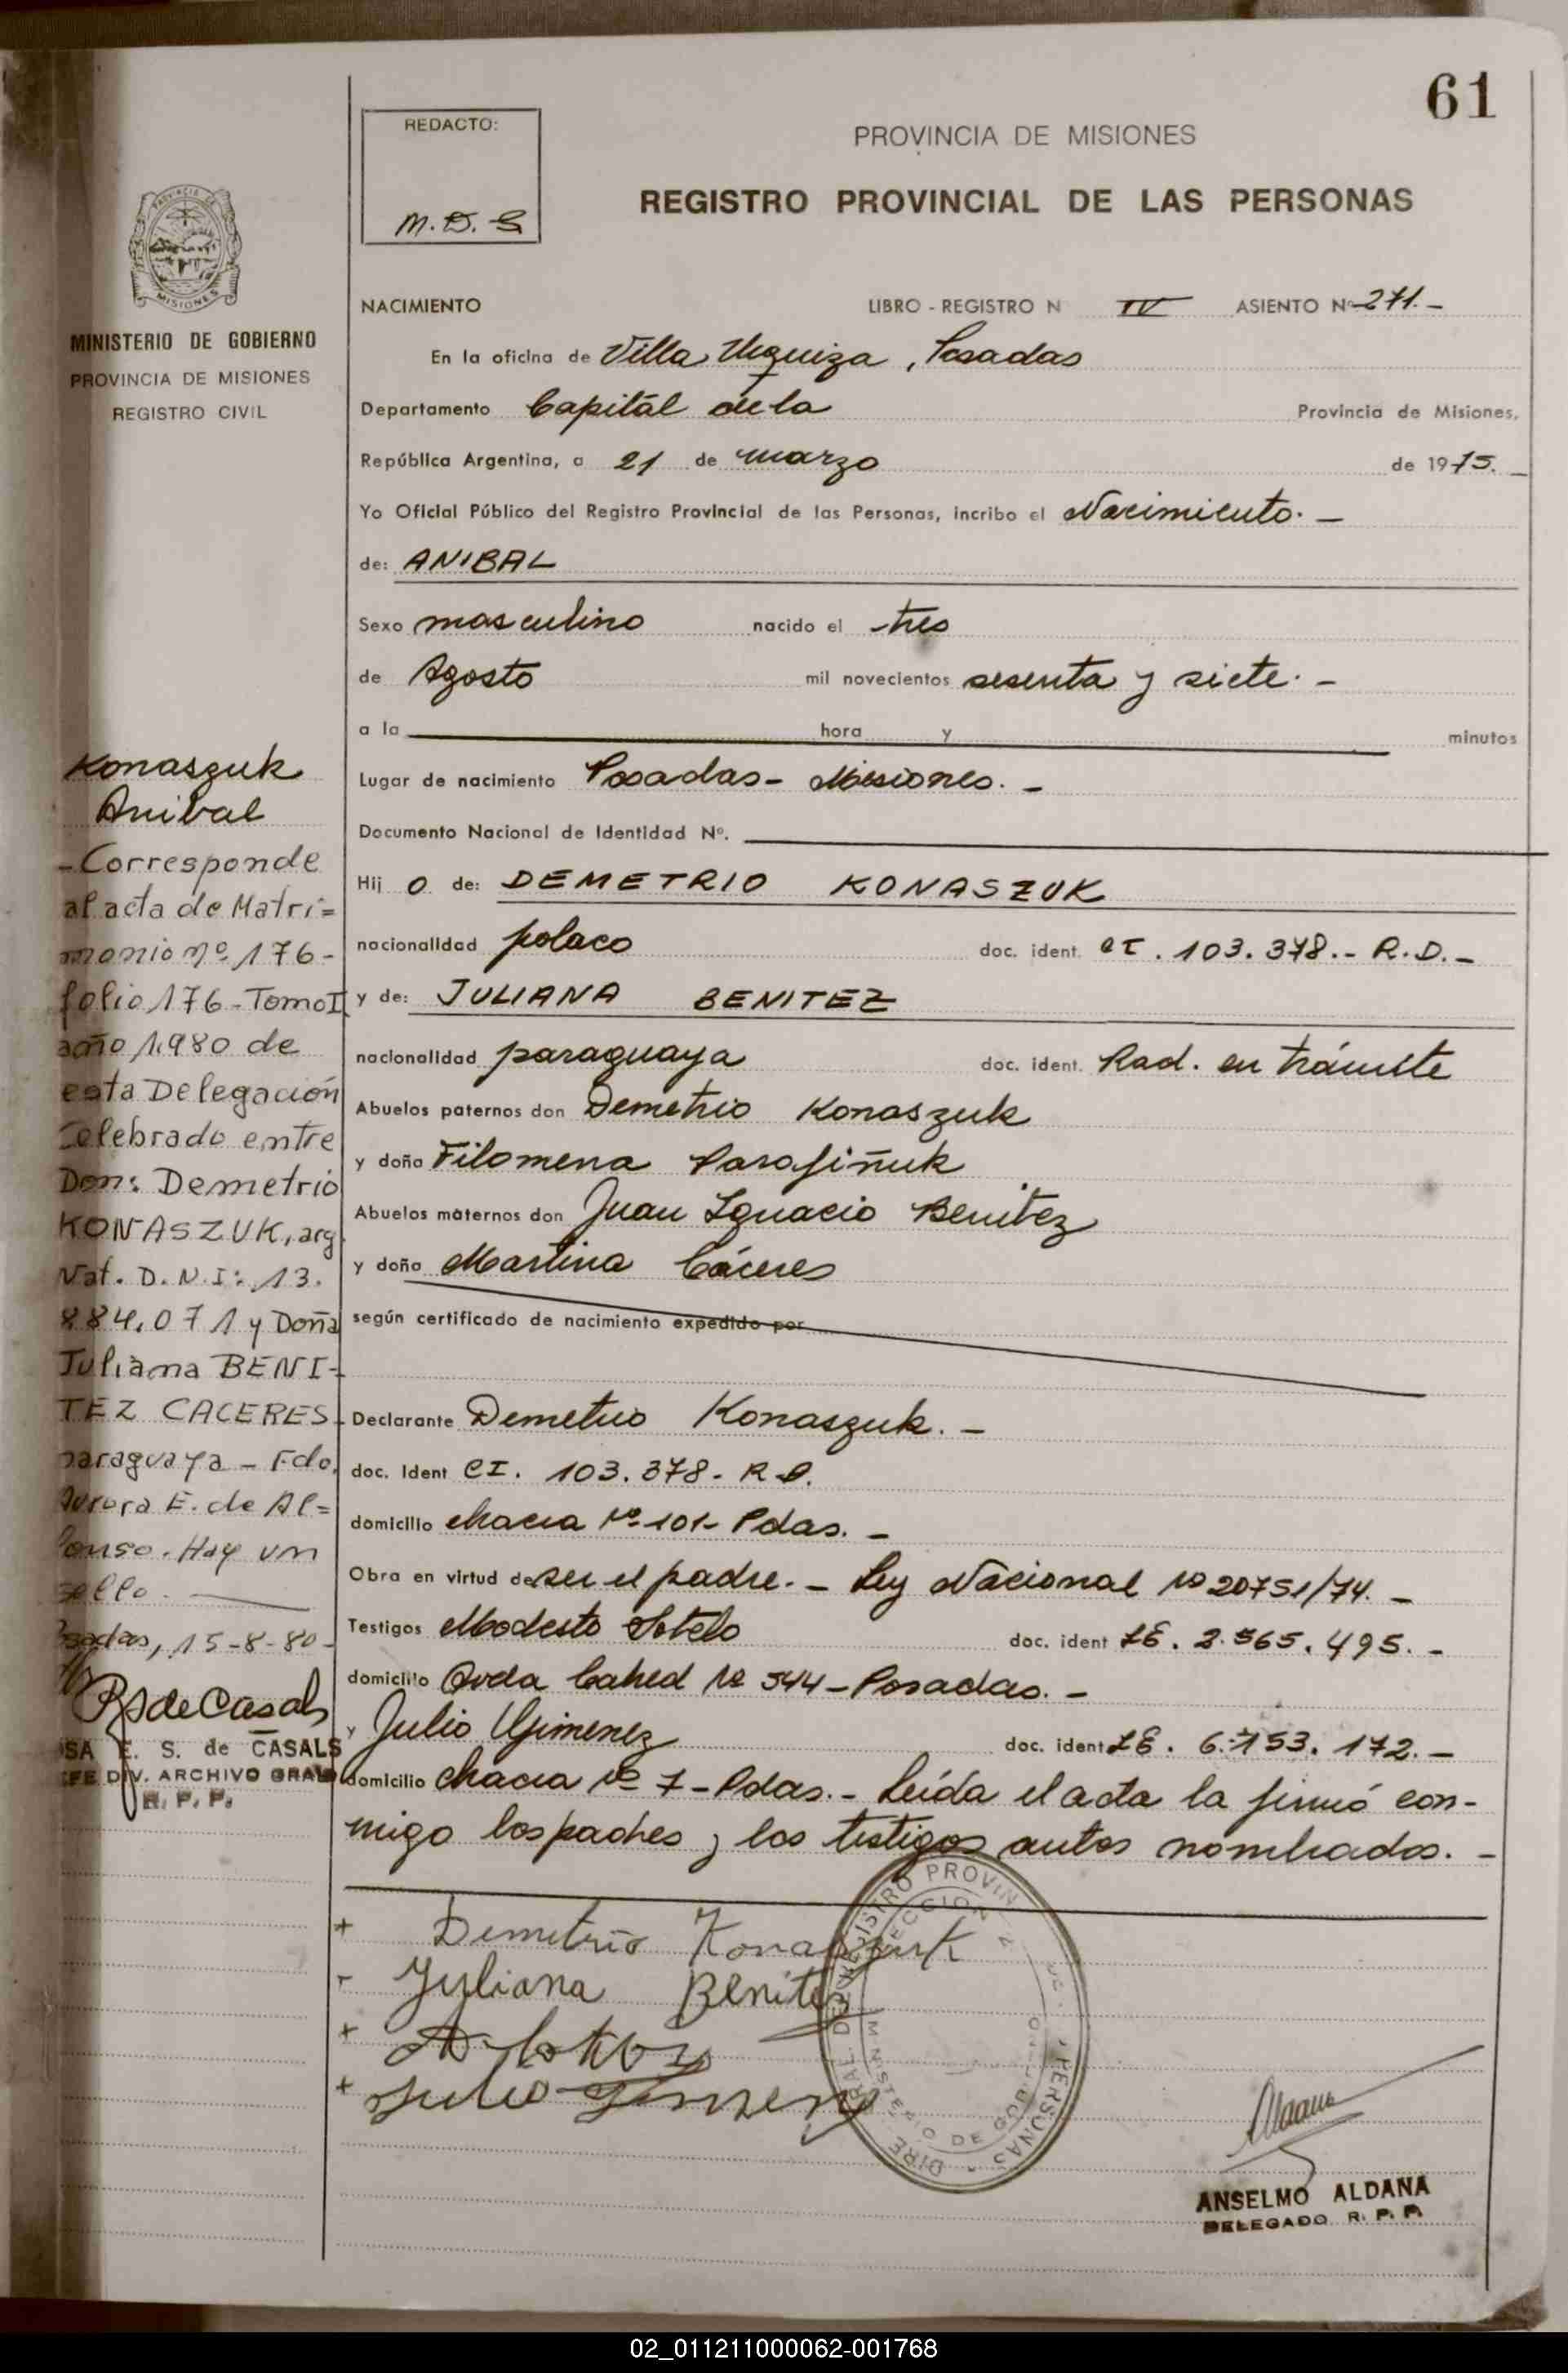 61
REDACTO:
M.D.S
PROVINCIA DE MISIONES
REGISTRO PROVINCIAL DE LAS PERSONAS
MISIONES
MINISTERIO DE GOBIERNO
PROVINCIA DE MISIONES
REGISTRO CIVIL
NACIMIENTO LIBRO - REGISTRO N IV ASIENTO Nº 271.-
En la oficina de Villa Urquiza, Posadas
Departamento Capital de la Provincia de Misiones,
República Argentina, a 21 de marzo de 1975.-
Yo Oficial Público del Registro Provincial de las Personas, incribo el Nacimiento.-
de: ANIBAL
Sexo masculino nacido el tres
de Agosto mil novecientos sesenta y siete.-
a la hora y minutos
Lugar de nacimiento Posadas- Misiones.-
Documento Nacional de Identidad Nº.
Hij o de: DEMETRIO KONASZUK
nacionalidad polaco doc. ident. CI. 103.378.- R.D.-
y de: JULIANA BENITEZ
nacionalidad paraguaya doc. ident. Rad. en trámite
Abuelos paternos don Demetrio Konaszuk
y doña Filomena Parafiñuk
Abuelos maternos don Juan Ignacio Benitez
y doña Martina Cáceres
según certificado de nacimiento expedido por
Declarante Demetrio Konaszuk.-
doc. Ident CI. 103.378- R.D.
domicilio chacra Nº 101- Pdas.-
Obra en virtud de ser el padre.- Ley Nacional Nº 20751/74.-
Testigos Modesto Sotelo doc. ident LE. 2.565.495.-
domicilio Avda Cahed Nº 544-Posadas.-
y Julio Gimenez doc. ident LE. 6.153.172.-
domicilio chacra Nº 7-Pdas.- Leída el acta la firmó con-
migo los padres y los testigos antes nombrados.-
Konaszuk
Anibal
-Corresponde
al acta de Matri=
monio nº 176-
folio 176-Tomo I
año 1.980 de
esta Delegación
Celebrado entre
Don: Demetrio
KONASZUK, arg.
Nat. D.N.I: 13.
884.071 y Doña
Juliana BENI-
TEZ CACERES-
paraguaya - Fdo.
Aurora E. de Al=
fonso. Hay un
sello.
Posadas, 15-8-80-
RSdeCasals
E. S. de CASALS
DIV. ARCHIVO GRAL
R. P. P.
+ Demetrio Konaszuk
Juliana Benitez
+
+ Julio Jimenez
MINISTERIO DE GOBIERNO
ANSELMO ALDANA
DELEGADO R. P. P.
02_011211000062-001768